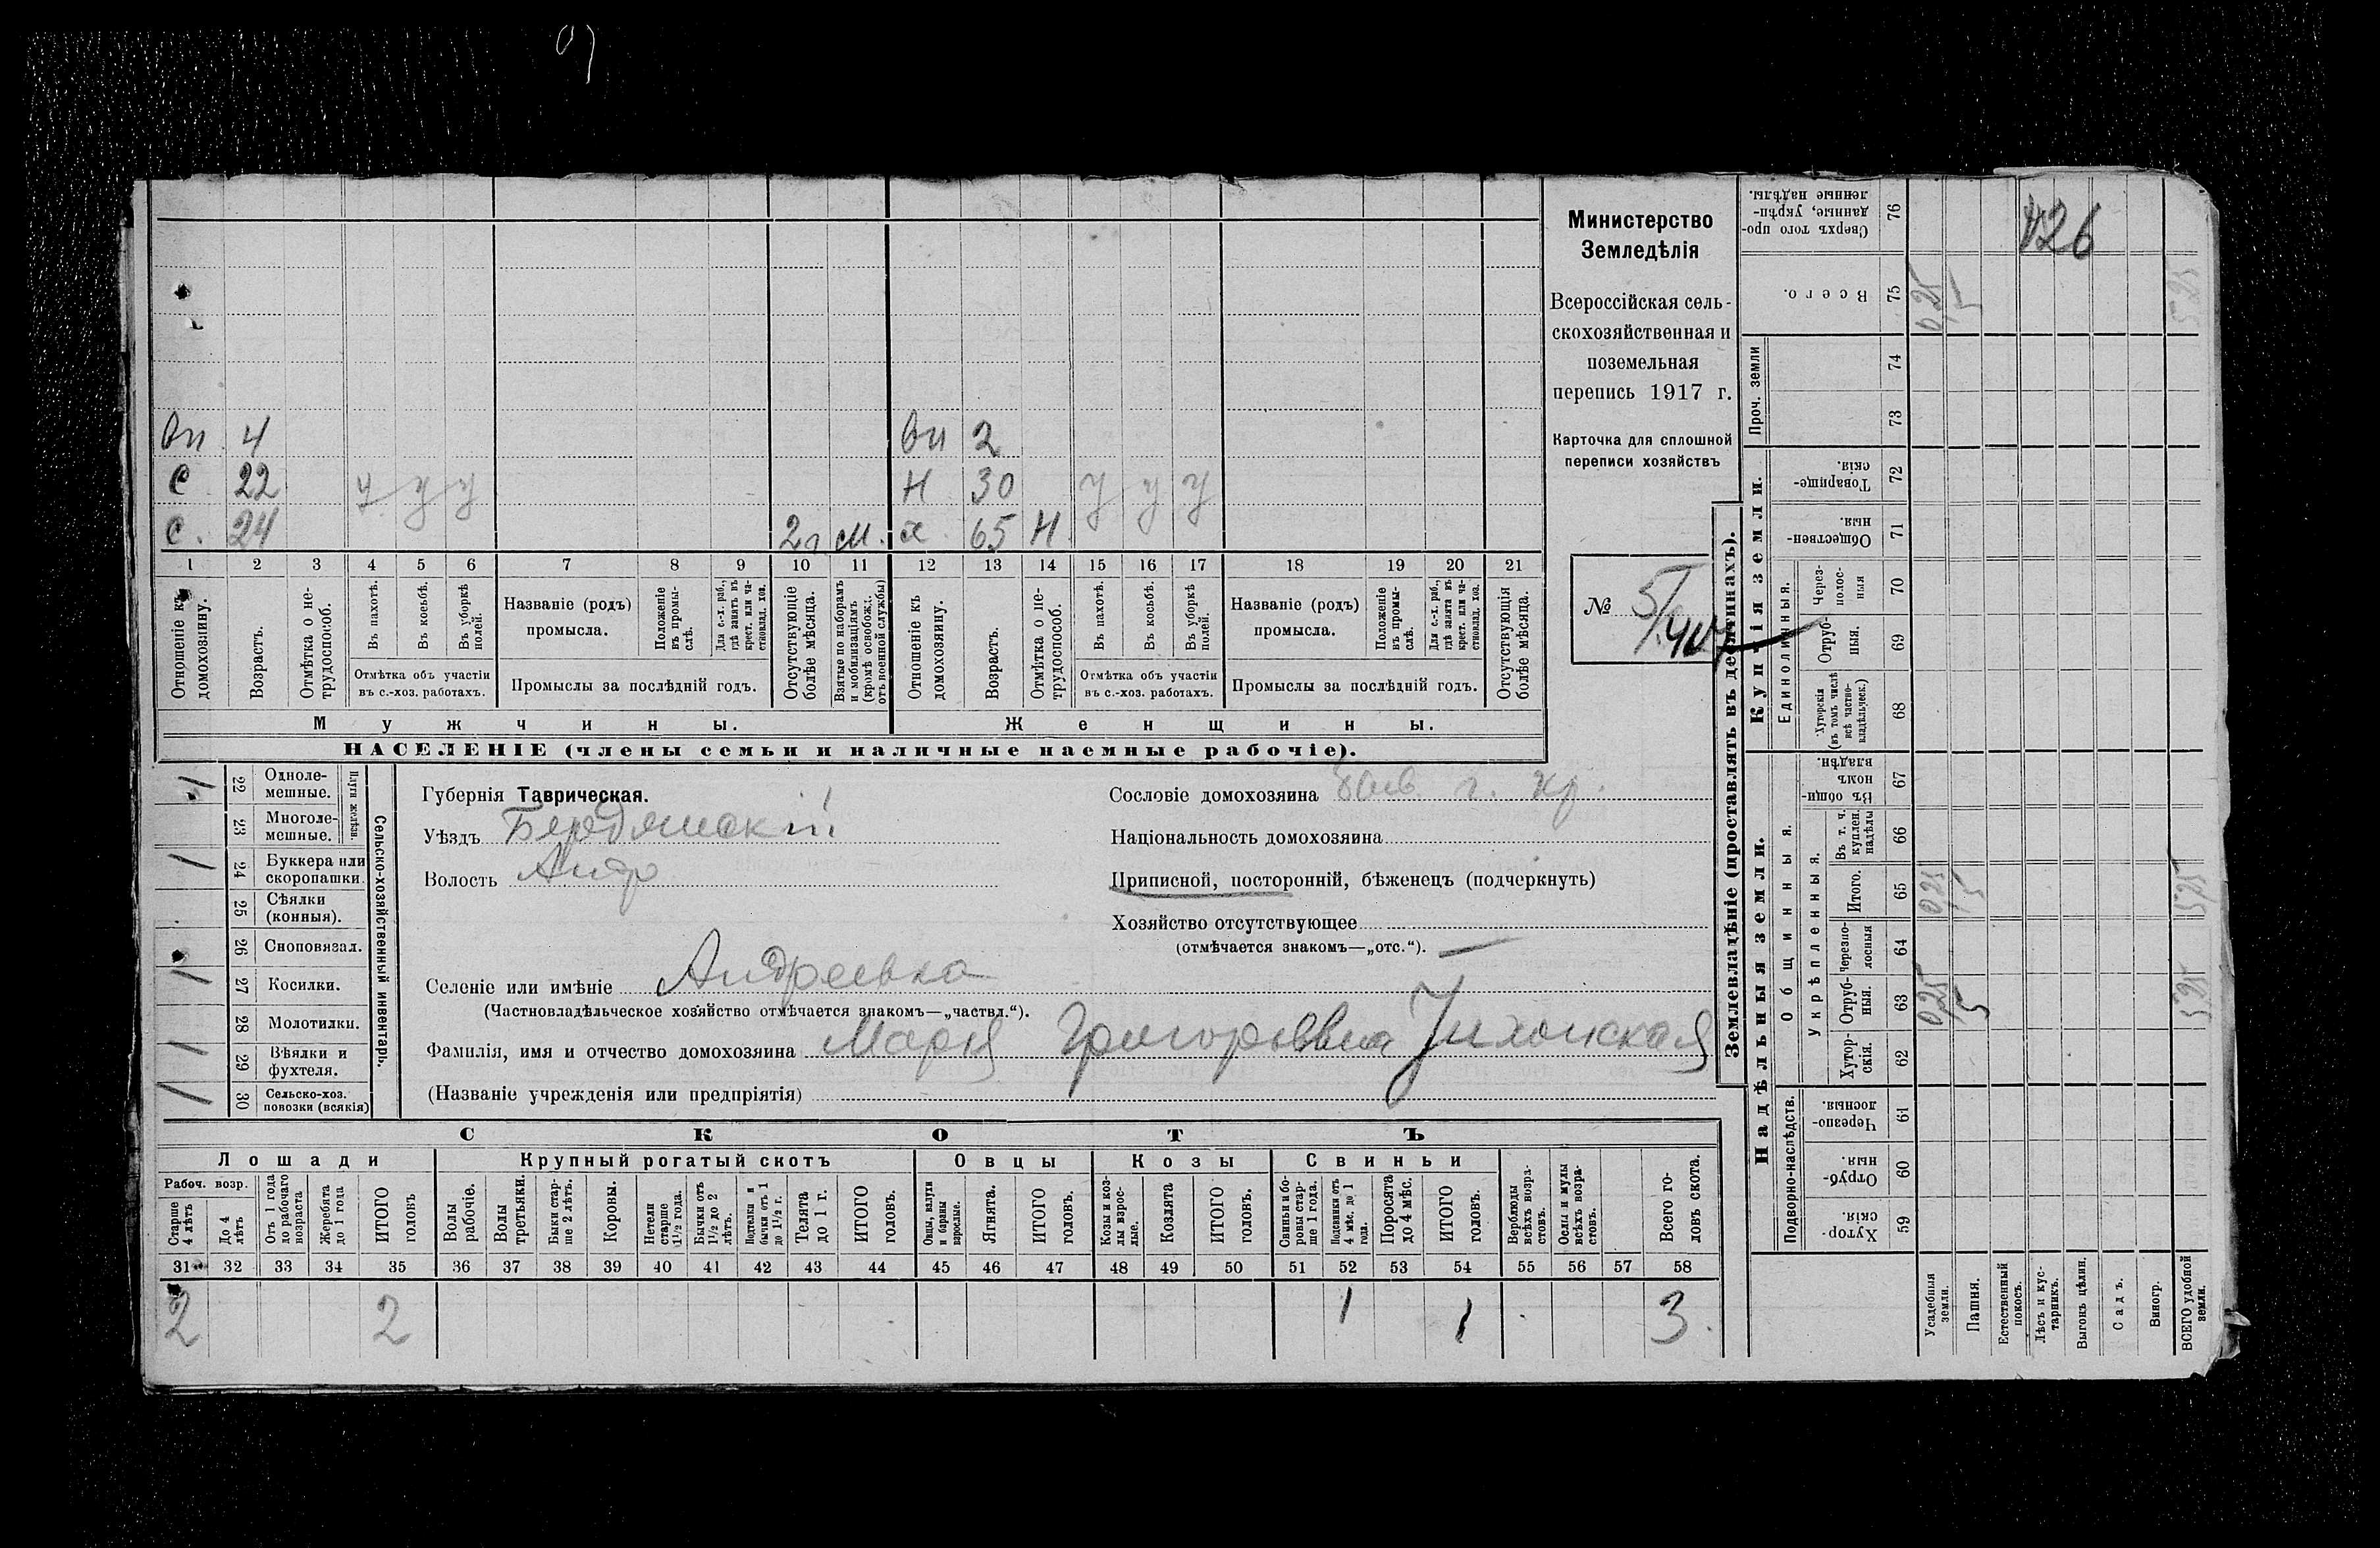 Министерство
Земледѣлія
Всероссійская сель-
скохозяйственная и
поземельная
перепись 1917 г.
Карточка для сплошной
переписи хозяйствъ
№ 5
407
426
Вн 4 Вн 2
С 22 у у у Н 30 у у у
С. 24 2 г М. х. 65 Н
1 2 3 4 5 6 7 8 9 10 11 12 13 14 15 16 17 18 19 20 21
Отношеніе къ домохозяину.
Возрастъ.
Отмѣтка о не-трудоспособ.
Въ пахотѣ.
Въ косьбѣ.
Въ уборкѣ полей.
Отмѣтка объ участіи
въ с.-хоз. работахъ.
Названіе (родъ)
промысла.
Положеніе въ промы-слѣ.
Для с.-х. раб., гдѣ занятъ въ крест. или ча-стновлад. хоз.
Промыслы за послѣдній годъ.
Отсутствующіе болѣе мѣсяца.
Взятые по наборамъ и мобилизаціямъ (кромѣ освобож. отъ военной службы)
Отношеніе къ домохозяину.
Возрастъ.
Отмѣтка о не-трудоспособ.
Въ пахотѣ.
Въ косьбѣ.
Въ уборкѣ полей.
Отмѣтка объ участіи
въ с.-хоз. работахъ.
Названіе (родъ)
промысла.
Положеніе въ промы-слѣ.
Для с.-х. раб., гдѣ занята въ крест. или ча-стновлад. хоз.
Промыслы за послѣдній годъ.
Отсутствующія болѣе мѣсяца.
Мужчины. Женщины.
НАСЕЛЕНІЕ (члены семьи и наличные наемные рабочіе).
Сельско-хозяйственный инвентарь.
Плуги желѣзн.
1 22 Одноле-мешные.
23 Многоле-мешные.
1 24 Буккера или скоропашки.
25 Сѣялки (конныя).
26 Сноповязал.
1 27 Косилки.
28 Молотилки.
1 29 Вѣялки и фухтеля.
1 30 Сельско-хоз. повозки (всякія)
Губернія Таврическая.
Уѣздъ Бердянскій
Волость Андр
Селеніе или имѣніе Андреевка
(Частновладѣльческое хозяйство отмѣчается знакомъ—„частвл.“).
Фамилія, имя и отчество домохозяина Марія Григорьевна
(Названіе учрежденія или предпріятія)
Сословіе домохозяина г. кр.
Національность домохозяина
Приписной, посторонній, бѣженецъ (подчеркнуть)
Хозяйство отсутствующее —
(отмѣчается знакомъ—„отс.“).
СКОТЪ
Лошади Крупный рогатый скотъ Овцы Козы Свиньи
Рабоч. возр.
Старше 4 лѣтъ
До 4 лѣтъ
Отъ 1 года до рабочаго возраста
Жеребята до 1 года
ИТОГО головъ
Волы рабочіе.
Волы третьяки.
Быки стар-ше 2 лѣтъ.
Коровы.
Нетели старше 1½ года.
Бычки отъ 1½ до 2 лѣтъ.
Подтелки и бычки отъ 1 до 1½ г.
Телята до 1 г.
ИТОГО головъ.
Овцы, валухи и бараны взрослые.
Ягнята.
ИТОГО головъ.
Козы и коз-лы взрос-лые.
Козлята
ИТОГО головъ.
Свиньи и бо-ровы стар-ше 1 года.
Подсвинки отъ 4 мѣс. до 1 года.
Поросята до 4 мѣс.
ИТОГО головъ.
Верблюды всѣхъ возра-стовъ.
Ослы и мулы всѣхъ возра-стовъ.
Всего го-ловъ скота.
31 32 33 34 35 36 37 38 39 40 41 42 43 44 45 46 47 48 49 50 51 52 53 54 55 56 57 58
2 2 1 1 3
Землевладѣніе (проставлять въ десятинахъ).
Купчія земли.
Надѣльныя земли.
Проч. земли
Единоличныя.
Общинныя.
Укрѣпленныя.
Подворно-наслѣдств.
Сверхъ того про-данные, укрѣп-ленные надѣлы. 76
Всего. 75 0,25 5 5,25
74
73
Товарище-скія. 72
Обществен-ныя. 71
Через-полос-ныя 70
Отруб-ныя. 69
Хуторскія (въ томъ числѣ всѣ частно-владѣльческ.) 68
Въ общин-номъ владѣн. 67
Въ т. ч. куплен. надѣлы 66
Итого. 65 0,25 5 5,25
Черезпо-лосныя 64
Отруб-ныя. 63 0,25 5 5,25
Хутор-скія. 62
Черезпо-лосныя. 61
Отруб-ныя. 60
Хутор-скія. 59
Усадебныя земли.
Пашня.
Естественный покосъ.
Лѣсъ и кус-тарникъ.
Выгонъ цѣлин.
Садъ.
Виногр.
ВСЕГО удобной земли.